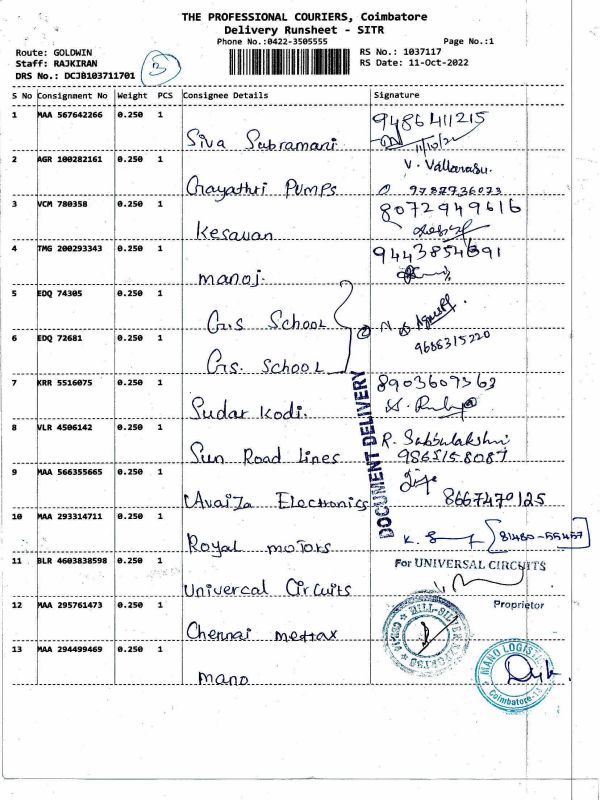 THE PROFESSIONAL COURIERS, Coimbatore
Delivery Runsheet - SITR
Phone No.:0422-3505555 Page No.:1
Route: GOLDWIN RS No.: 1037117
Staff: RAJKIRAN RS Date: 11-Oct-2022
DRS No.: DCJB103711701
3
S No Consignment No Weight PCS Consignee Details Signature
1 MAA 567642266 0.250 1 Siva Subramani 9486411215
11/10/22
2 AGR 100282161 0.250 1 Gayathri Pumps V. Vallarasu.
9787936073
3 VCM 780358 0.250 1 Kesavan 8072949616
4 TMG 200293343 0.250 1 manoj. 9443854691
5 EDQ 74305 0.250 1 G.s School
6 EDQ 72681 0.250 1 G.s. School 9688315220
7 KRR 5516075 0.250 1 Sudar Kodi. 8903607363
8 VLR 4506142 0.250 1 Sun Road Lines R. Subbulakshmi
9865158087
DOCUMENT DELIVERY
9 MAA 566355665 0.250 1 Avaiza Electronics 8667470125
10 MAA 293314711 0.250 1 Royal motors K. 81480-55457
11 BLR 4603838598 0.250 1 Univercal Circuits For UNIVERSAL CIRCUITS
Proprietor
12 MAA 295761473 0.250 1 Chennai mettax
13 MAA 294499469 0.250 1 mano MANO LOGIS
Coimbatore-13